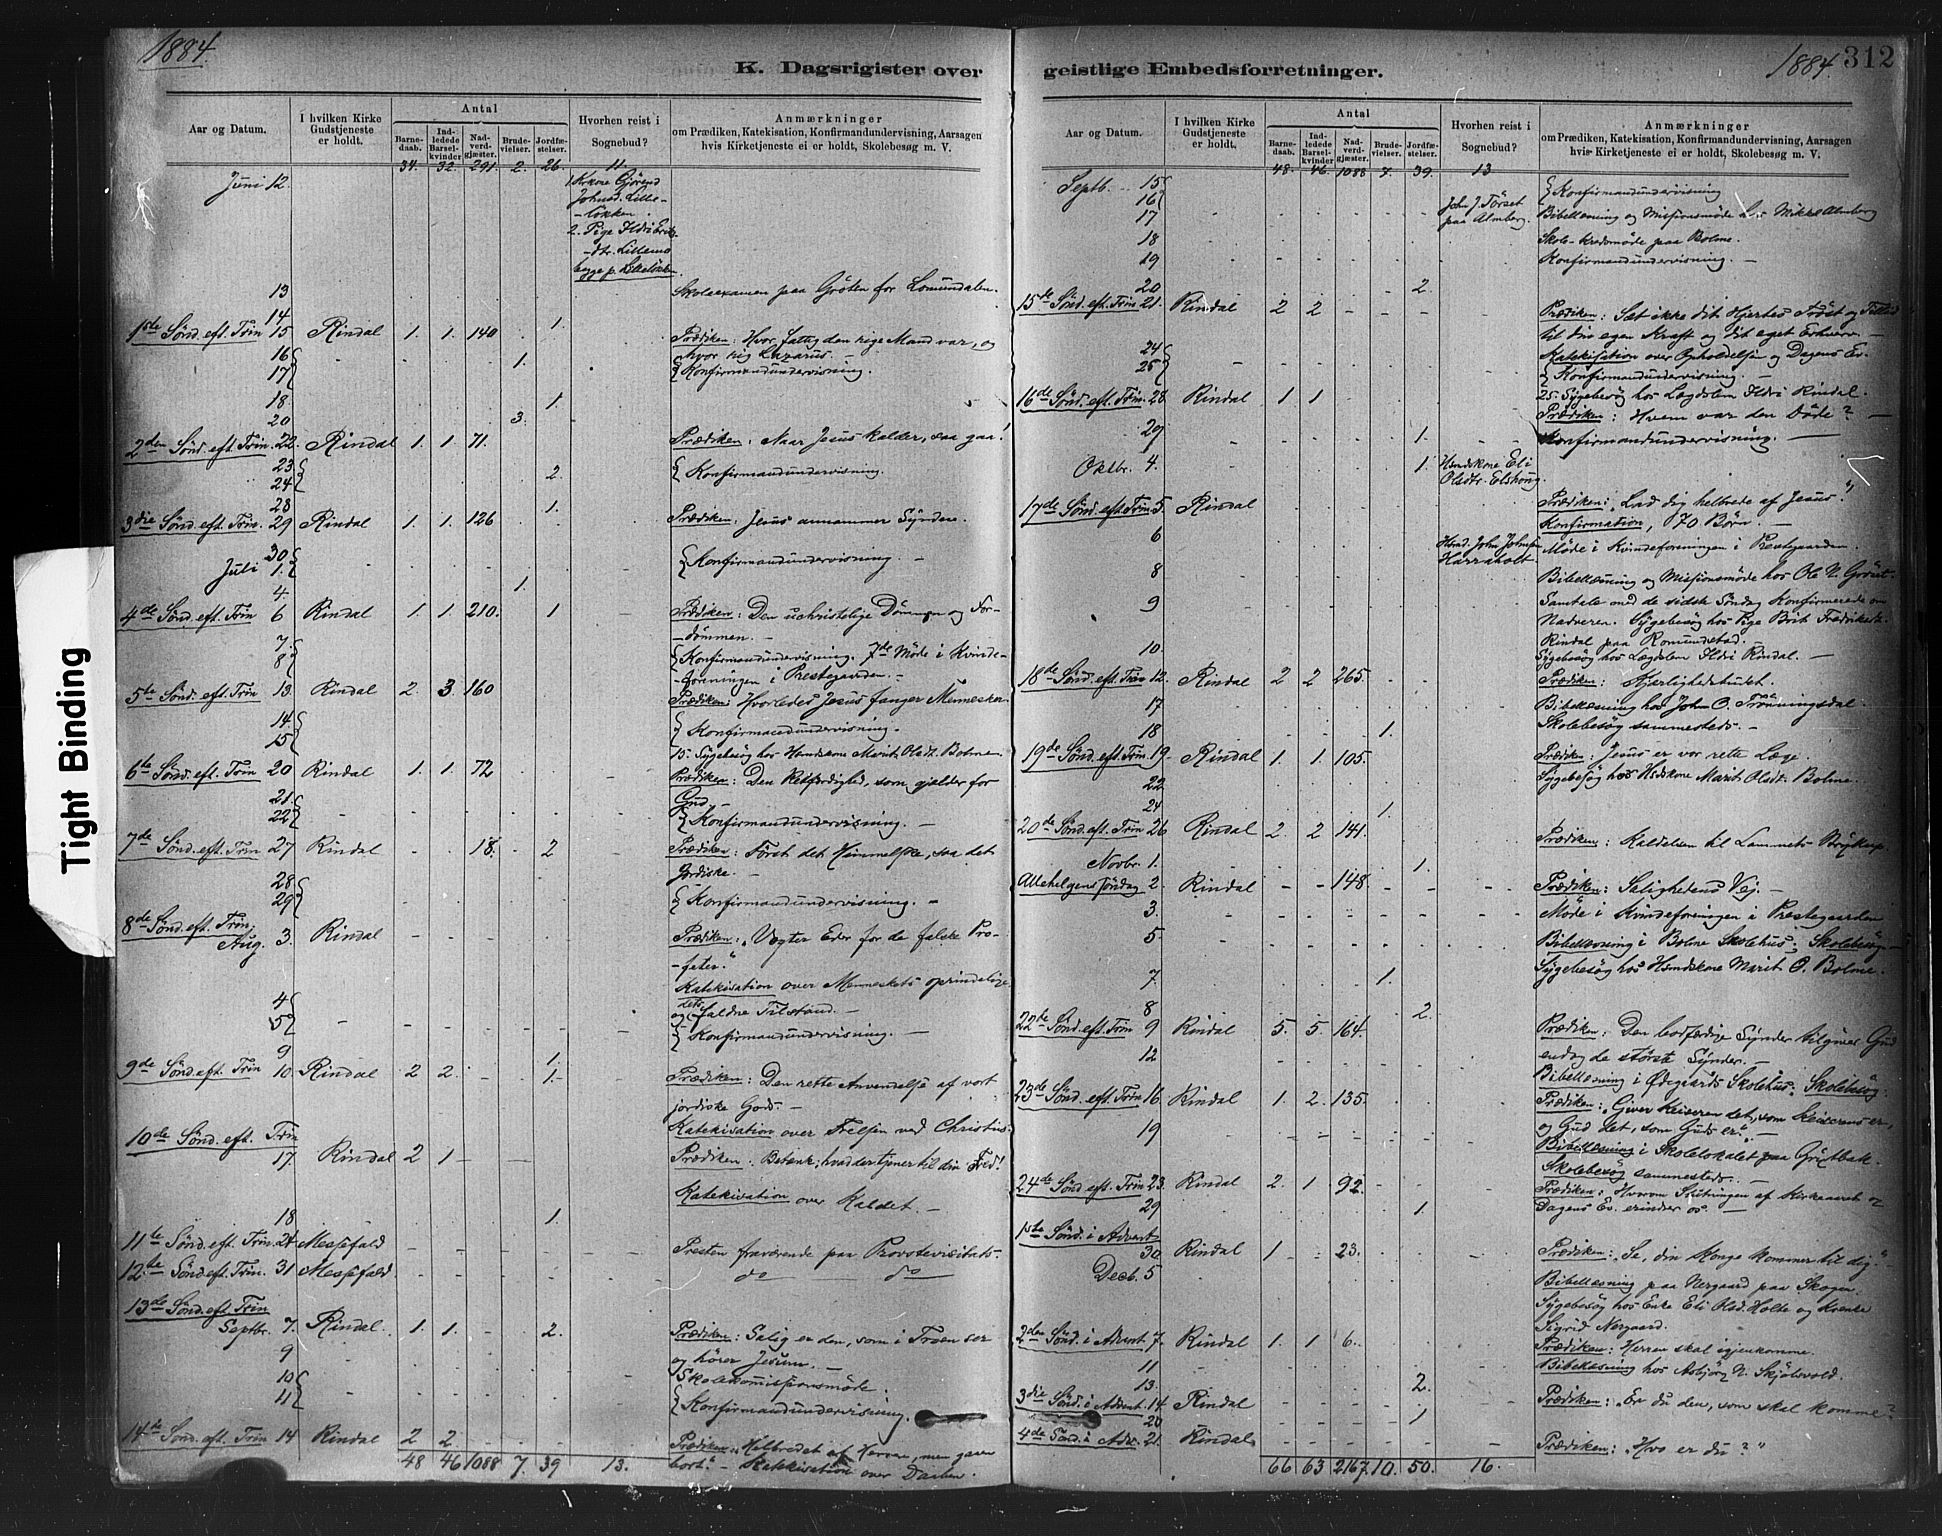 1884.
K. Dagsrigister over
Aar og Datum.
I hvilken Kirke Gudstjeneste er holdt.
Antal
Barne-daab.
Ind-ledede Barsel-kvinder
Nad-verd-gjæster.
Brude-vielser.
Jordfæ-stelser.
Hvorhen reist i Sognebud?
Anmærkninger
om Prædiken, Katekisation, Konfirmandundervisning, Aarsagen
hvis Kirketjeneste ei er holdt, Skolebesøg m. V.
34. 32. 291. 2. 26. 11.
Juni 12. 1 Kårkone Gjørend
Johnsd. Lille-
-løkken.
2. Pige Ildri Erik-
-dtr. Lillemo
begge p. Lilleløkken.
13 Skoleexamen paa Grøten for Lomundalen.
14 1.
1ste Sønd. eft. Trin 15 Rindal 1. 1. 140 Prædiken: Hvor fattig den rige Mand var, og
hvor rig Lazarus. —
16 1.
17 Konfirmandundervisning.
18. 1.
20 3.
2den Sønd. eft. Trin. 22. Rindal 1. 1. 71. Prædiken: Naar Jesus kalder, saa gaa!
23 2.
24 Konfirmandundervisning.
28 1.
3die Sønd. eft. Trin. 29 Rindal 1. 1. 126 Prædiken: Jesus annammer Syndere.
30
Juli 1. Konfirmandundervisning. —
4. 1.
4de Sønd. eft. Trin 6 Rindal 1. 1. 210. 1 Prædiken: Den uchristelige Dømmen og For-
-dømmen. —
7.
8 Konfirmandundervisning. 7de Møde i Kvinde-
-foreningen i Prestegarden. —
5te Sønd. eft. Trin 13. Rindal 2. 3. 160 Prædiken: Hvorledes Jesus fanger Mennesker.
14.
15. Konfirmandundervisning. —
15. Sygebesøg hos Hmdskone Marit Olsdt. Bolme.
6te Sønd. eft. Trin 20 Rindal 1. 1. 72 Prædiken: Den Retfærdighed, som gjælder for
Gud. —
21.
22 Konfirmandundervisning. —
7de Sønd. eft. Trin 27 Rindal 18. 2 Prædiken: Først det Himmelske, saa det
Jordiske. —
28
29 Konfirmandundervisning. —
8de Sønd. eft. Trin.
Aug. 3. Rindal Prædiken: „Vogter Eder for de falske Pro-
-feter."
Katekisation over Menneskets oprindelige
og dets faldne Tilstand. —
4
5 Konfirmandundervisning. —
9 1.
9de Sønd. eft. Trin 10. Rindal 2 2. 1. Prædiken: Den rette Anvendelse af vort
jordiske Gods. —
Katekisation over Frelsen ved Christus.
10de Sønd. eft. Trin
17. Rindal 2 1 Prædiken: Betænk, hvad der tjener til din Fred!
Katekisation over Kaldet. —
18 1.
11te Sønd. eft. Trin. 24 Messefald Presten fraværende paa Provstevisitats.
12te Sønd. eft. Trin. 31 Messefald. do do
13de Sønd. eft. Trin
Septbr. 7. Rindal. 1. 1. 2. Prædiken: Salig er den, som i Troen ser
og hører Jesum. —
9 Skolekommissionsmøde.
10
11 Konfirmandundervisning.
14de Sønd. eft. Trin 14 Rindal 2 2. Prædiken: „Helbredet af Herren, men gaaen
bort" — Katekisation over Daaben.
48 46 1088 7. 39 13.
1884. 312
geistlige Embedsforretninger.
Aar og Datum.
I hvilken Kirke Gudstjeneste er holdt.
Antal
Barne-daab.
Ind-ledede Barsel-kvinder
Nad-verd-gjæster.
Brude-vielser.
Jordfæ-stelser.
Hvorhen reist i Sognebud?
Anmærkninger
om Prædiken, Katekisation, Konfirmandundervisning, Aarsagen
hvis Kirketjeneste ei er holdt, Skolebesøg m. V.
48. 46. 1088 7. 39. 13
Septb. 15
16 Konfirmandundervisning
17 John J. Tørset paa Almberg. Bibellæsning og Missionsmøde hos Mikkel Almberg
18 Skole-kredsmøde paa Bolme.
19 Konfirmandundervisning. —
20 2.
15de Sønd. eft. Trin 21. Rindal 2 2 Prædiken: Sæt ikke dit Hjertes Trøst og Tillid
til din egen Kraft og dit eget Erhverv. —
Katekisation over Opholdelsen og Dagens Ev.
24
25 Konfirmandundervisning. —
25. Sygebesøg hos Lægdslem Ildri Rindal.
16de Sønd. eft. Trin. 28 Rindal 1 1 Prædiken: Hvem var den Døde? —
29 1. Konfirmandundervisning. —
Oktbr. 4. 1. Hsmdskone Eli
Olsdtr. Elshoug.
17de Sønd. eft Trin 5. Rindal Prædiken: „Lad dig helbrede af Jesus."
Konfirmation, 70 Børn. —
6 Hsmd. John Johnsen
Harraholt Møde i Kvindeforeningen i Prestegaarden.
8 Bibellæsning og Missionsmøde hos Ole N. Grøset.
9 Samtale med de sidste Søndag Konfirmerede om
Nadveren. Sygebesøg hos Pige Brit Fredriksdt.
Rindal paa Romundstad. —
10. Sygebesøg hos Lægdslem Ildri Rindal. —
18de Sønd. eft. Trin 12. Rindal 2 2 265. Prædiken: Kjærlighedsbudet.
17 Bibellæsning hos John O. Trønningsdal
Skolebesøg sammesteds. —
18 1.
19de Sønd. eft. Trin. 19. Rindal 1. 1. 105. Prædiken: Jesus er vor rette Læge.
22 Sygebesøg hos Hsdskone Marit Olsdt. Bolme.
24 1.
20de Sønd. eft. Trin 26 Rindal 2. 2 141. Prædiken: Kaldelsen til Lammets Bryllup.
Novbr. 1. 1.
Allehelgenssøndag 2. Rindal 148. Prædiken: Salighedens Vej. —
3. Møde i Kvindeforeningen i Prestegaarden
5 Bibellæsning i Bolme Skolehus. Skolebesøg. —
Sygebesøg hos Hsmdskone Marit O. Bolme.
7. 1.
8 2.
22de Sønd. eft. Trin 9 Rindal 5. 5. 164. Prædiken: Den bodfærdige Synder tilgiver Gud
endog de største Synder. —
12 Bibellæsning i Ødegaards Skolehus. Skolebesøg.
23de Sønd. eft. Trin 16 Rindal 1. 2. 135. Prædiken: „Giver Keiseren det, som Keiserens er,
og Gud det, som Guds er". —
19 Bibellæsning i Skolelokalet paa Grøtbak.
Skolebesøg sammesteds. —
24de Sønd. eft. Trin 23. Rindal 2. 1 92. Prædiken: Hvorom Slutningen af Kirkeaaret og
Dagens Ev. erindrer os. —
29 1.
1ste Sønd. i Advent
30 Rindal 1 23. Prædiken: „Se, din Konge kommer til dig."
Decb. 5 Bibellæsning paa Nergaard paa Skogen.
Sygebesøg hos Enke Eli Olsd. Holte og Kvenke
Sigrid Nergaard.
2den Sønd. i Advent 7. Rindal 1 1 6. Prædiken: Herren skal igjenkomme.
11 Bibellæsning hos Asbjørn N. Skjølsvold.
13. 2.
3die Sønd. i Advent 14 Rindal Prædiken: „Er du den, som skal komme?
20 1
4de Sønd. i Adv. 21. Rindal Prædiken: „Hvo er du?"
66 63 2167. 10. 50. 16.
Tight Binding